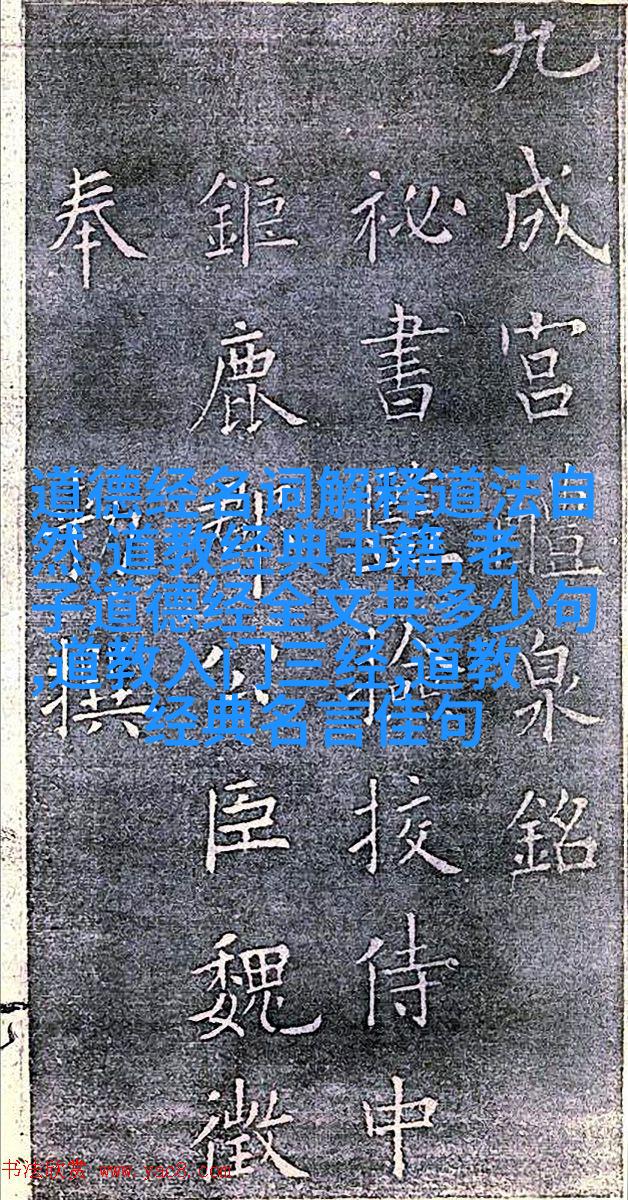 九成宮醴泉銘
祕書監檢挍侍中
鉅鹿郡公臣魏徵
奉 撰
道德经名词解释道法自
然,道教经典书籍,老
子道德经全文共多少句
,道教入门三经,道教
经典名言佳句
书法欣赏 www.yac8.com